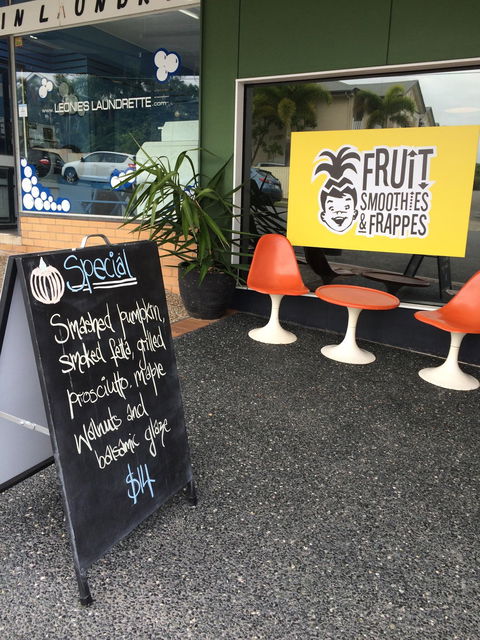 IN LAUNDR
www.LEONIES LAUNDRETTE.com
FRUIT
SMOOTHIES
& FRAPPES
Special
Smashed pumpkin,
smoked fetta, grilled
prosciutto, maple
Walnuts and
balsamic glaze
$14